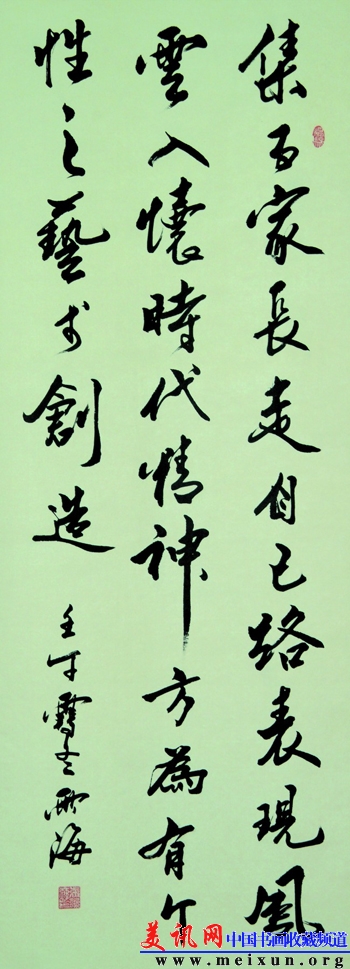 集百家長走自己路表現風
雲入懷時代精神方為有个
性之藝术創造
壬午雪冬雲海
美讯网 中国书画收藏频道
www.meixun.org